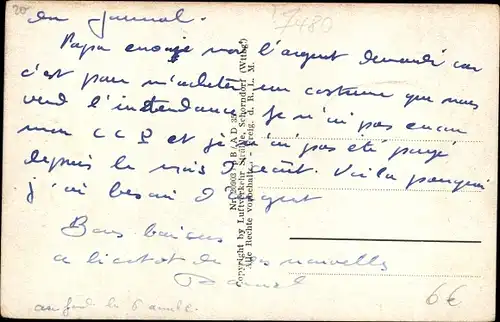 du journal.
Papa envoie moi l'argent demandé car
c'est pour m'acheter un costume que nous
vend l'intendance. Je n'ai pas encore
mon CCP et je n'ai pas été payé
depuis le mois d'août. Voilà pourquoi
j'ai besoin d'argent
Bons baisers
à bientôt de vos nouvelles
7480
20
6€
Copyright by Luftverkehr Strähle, Schorndorf (Wttbg)
Alle Rechte vorbehalten